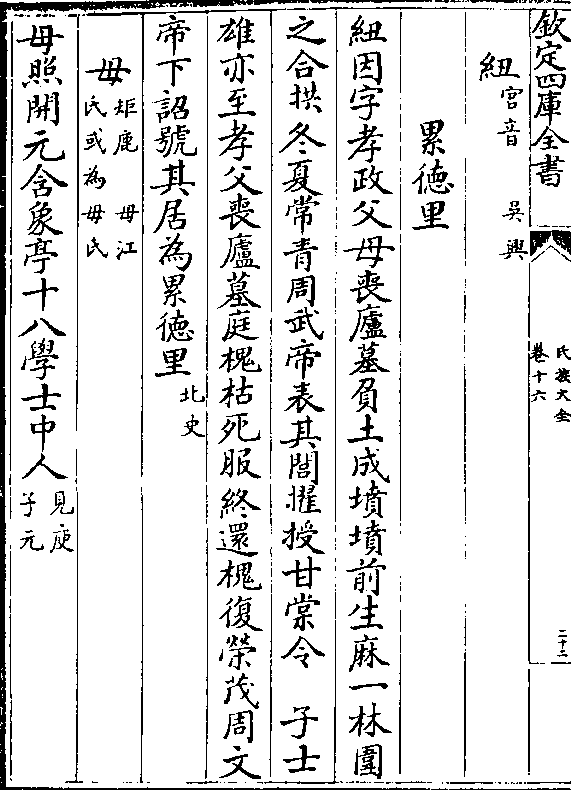 欽定四庫全書
氏族大全
卷十六
二十二
紐宮音 吳興
累德里
紐因字孝政父母喪廬墓負土成墳墳前生麻一林圍
之合拱冬夏常青周武帝表其閭擢授甘棠令 子士
雄亦至孝父喪廬墓庭槐枯死服終還槐復榮茂周文
帝下詔號其居為累德里北史
毋矩鹿 毋江
氏或為毋氏
毋照開元含象亭十八學士中人見庾
子元